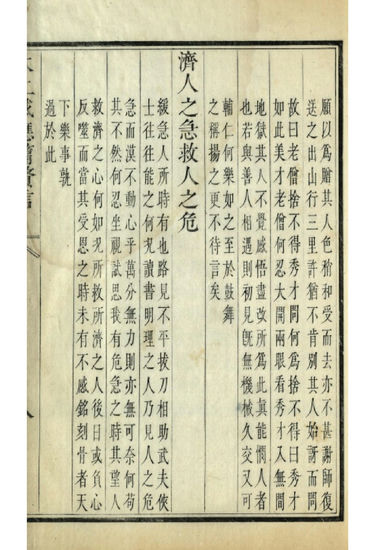 願以爲贈其人色稍和受而去亦不甚謝師復
送之出山行三里許猶不肯別其人始訝而問
故曰老僧捨不得秀才問何爲捨不得曰秀才
如此美才老僧何忍大開兩眼看秀才又無間
地獄其人不覺感悟盡改所爲此眞能憫人者
也若與善人相遇則初見旣無機械久交又可
輔仁何樂如之至於鼓舞
之稱揚之更不待言矣
濟人之急救人之危
緩急人所時有也路見不平拔刀相助武夫俠
士往往能之何況讀書明理之人乃見人之危
急而漠不動心乎萬分無力則亦無可奈何苟
其不然何忍坐視試思我有危急之時其望人
救濟之心何如況所救所濟之人後日或負心
反噬而當其受恩之時未有不感銘刻骨者天
下樂事孰
過於此